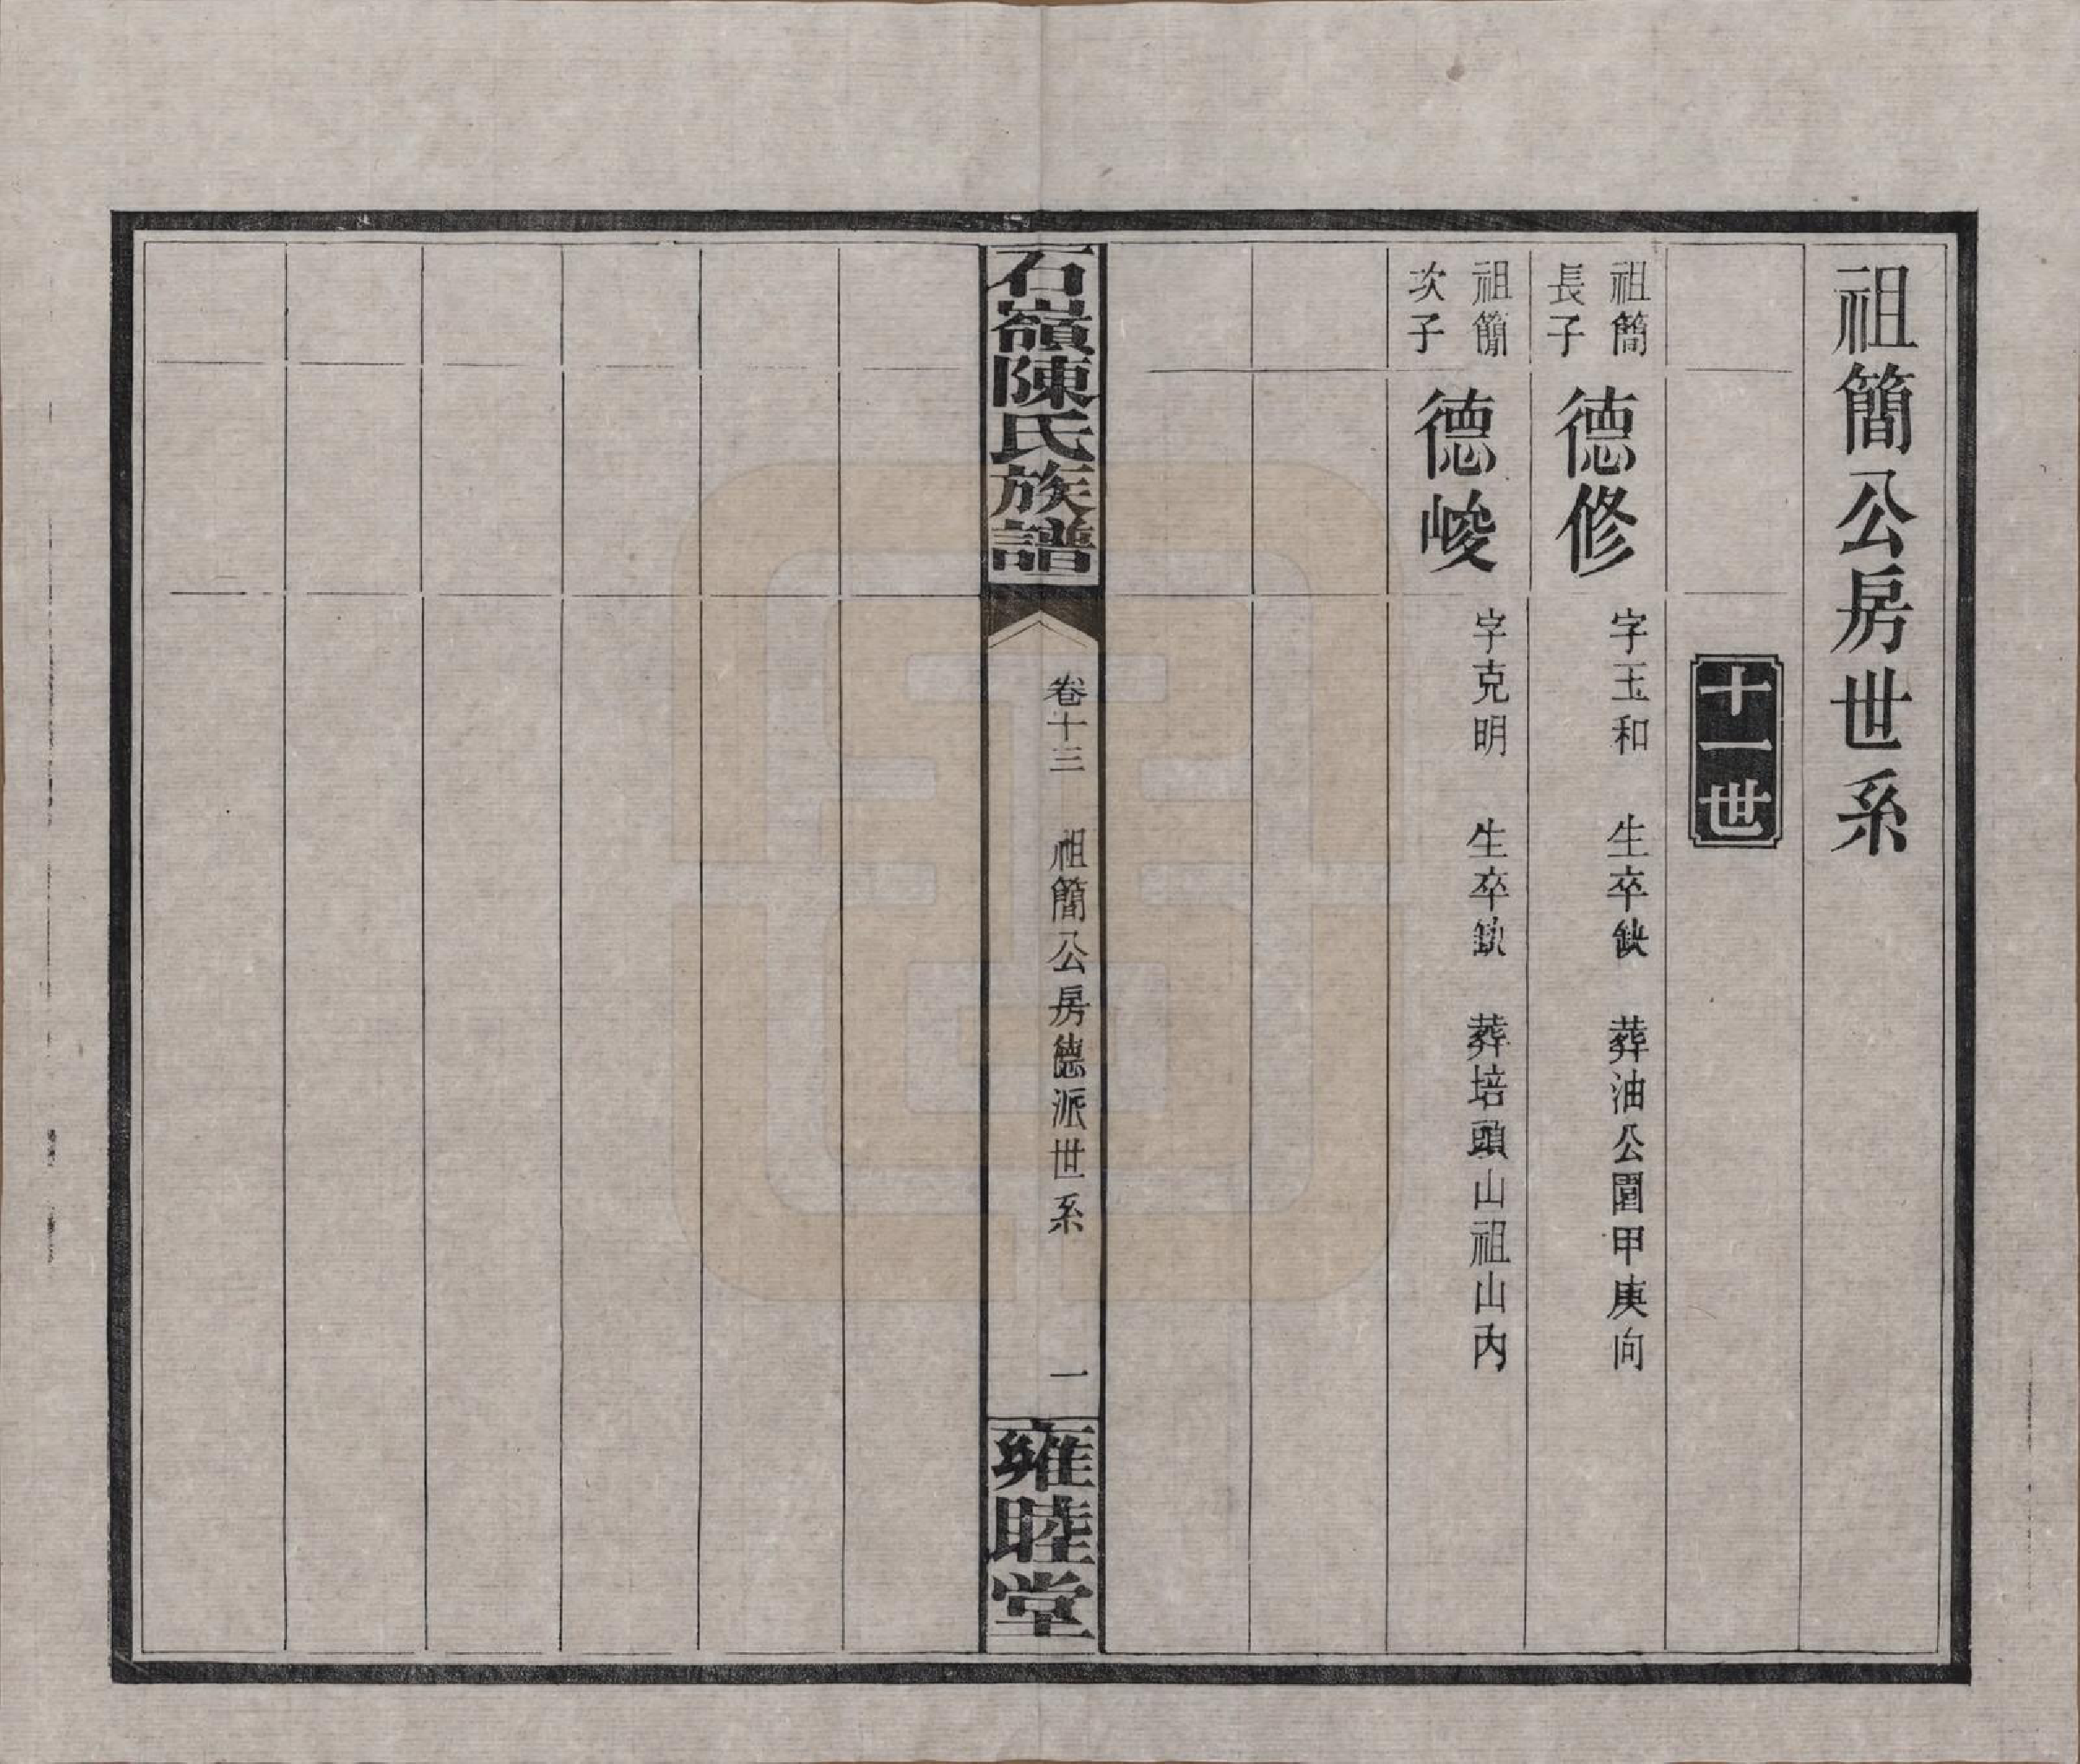 祖簡公房世系
十一世
祖簡
長子
德修
字玉和　生卒缺　葬油公園甲庚向
祖簡
次子
德峻
字克明　生卒缺　葬培頭山祖山內
石嶺陳氏族譜
卷十三　祖簡公房德派世系　一
雍睦堂